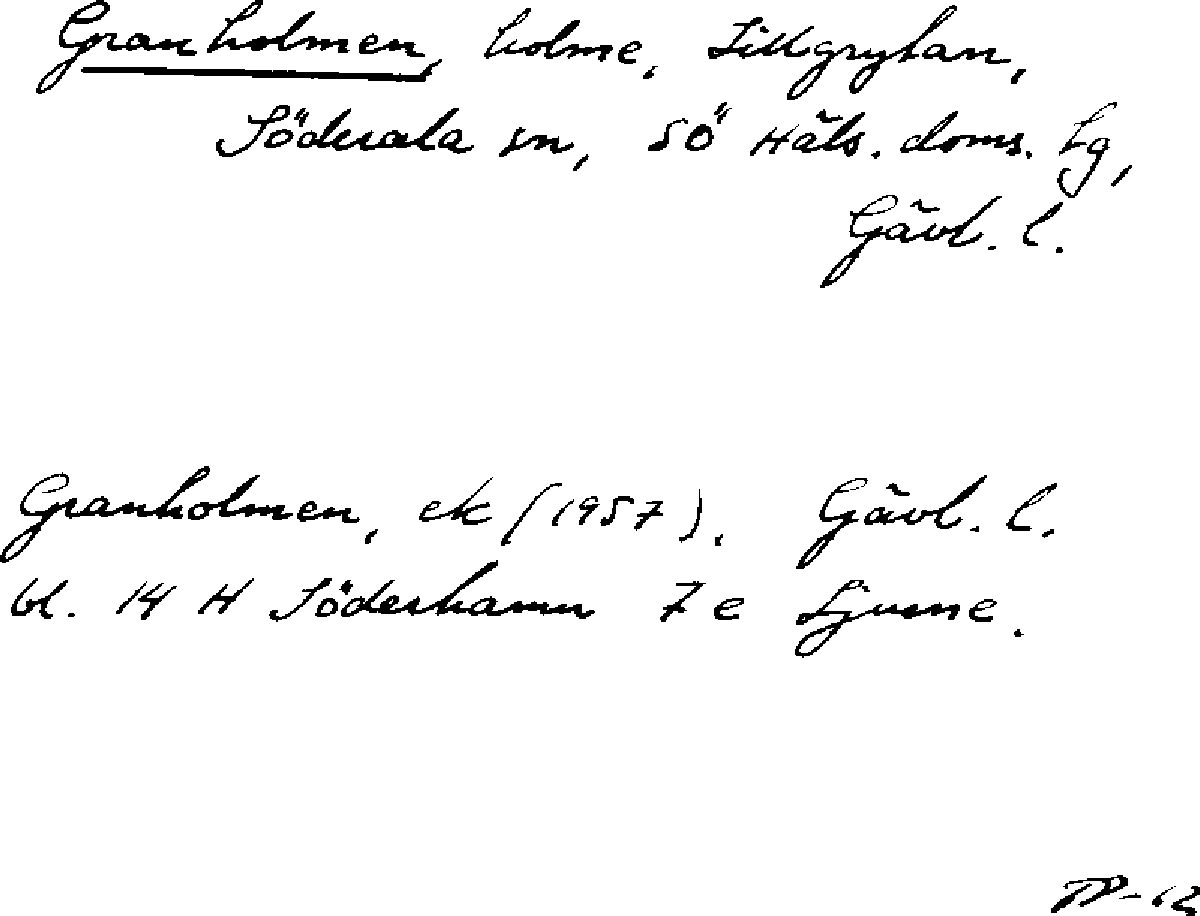 Granholmen, holme, Sikgrytan,
Söderala sn, SÖ Häls. doms. Lg,
Gävl. l.
Granholmen, ek (1957). Gävl. l.
bl. 14 H Söderhamn 7 e Ljusne.